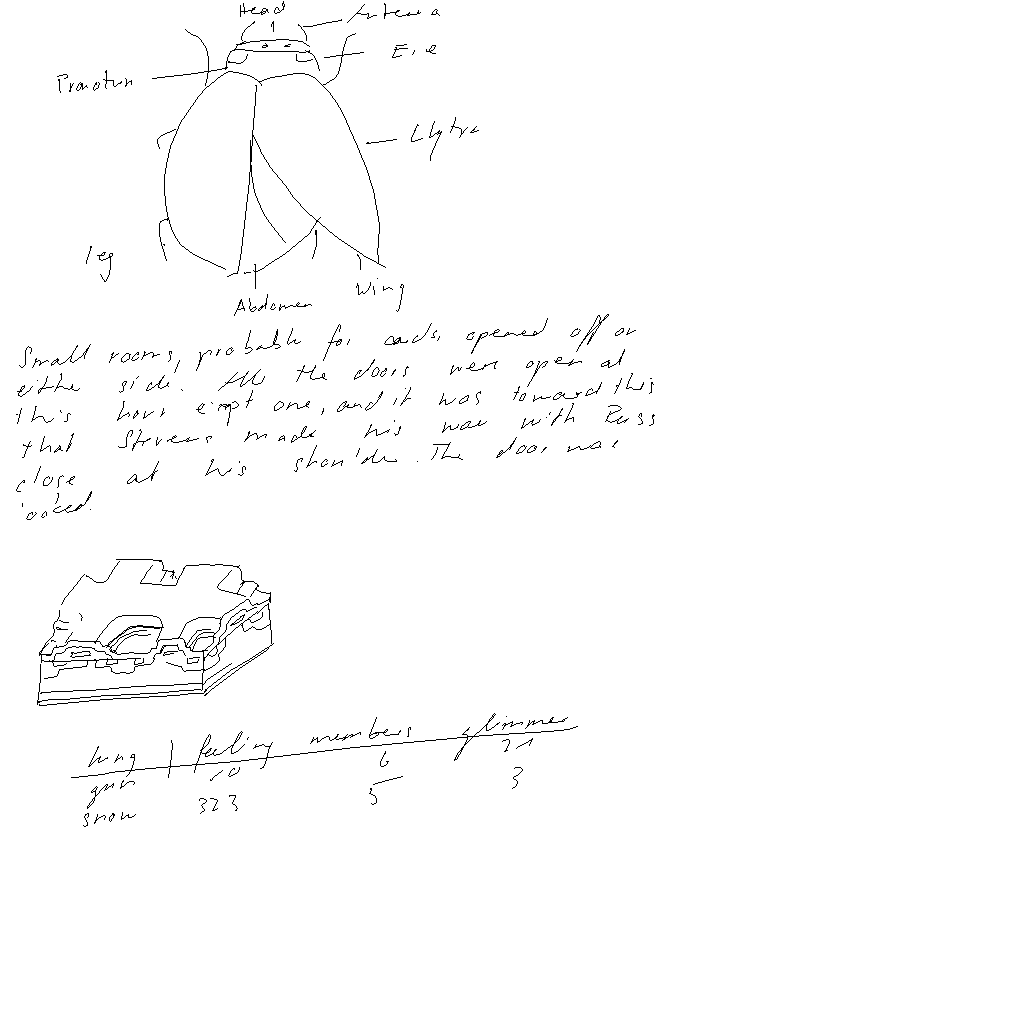 Head
Antenna
Eye
Pronotum
Elytra
leg
Wing
Abdomen
Small rooms, probable for cards, opened off on
eithe side. All the doors were open at
this hour exept one, and it was toward this
that Stevens made his way with Russ
close at his shoulde. The door was
locked.
lung feeling members glimmer
10 6 21
grin
snow 323 5 3